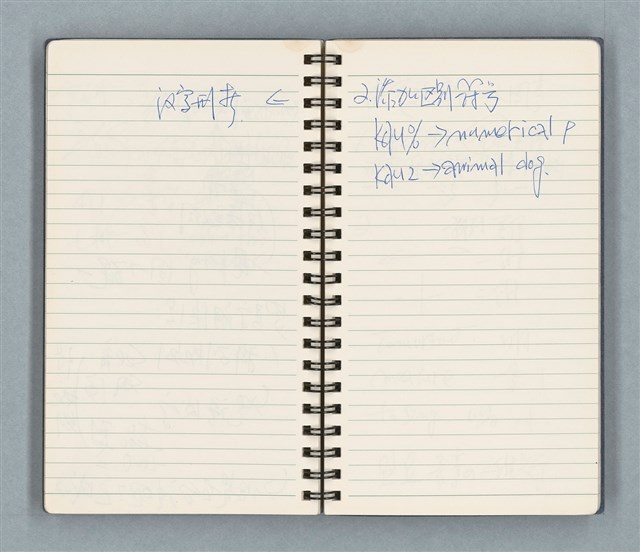 汉字刑考 ←
2.添加区别符号
kau% → numerical p
kau2 → animal dog.